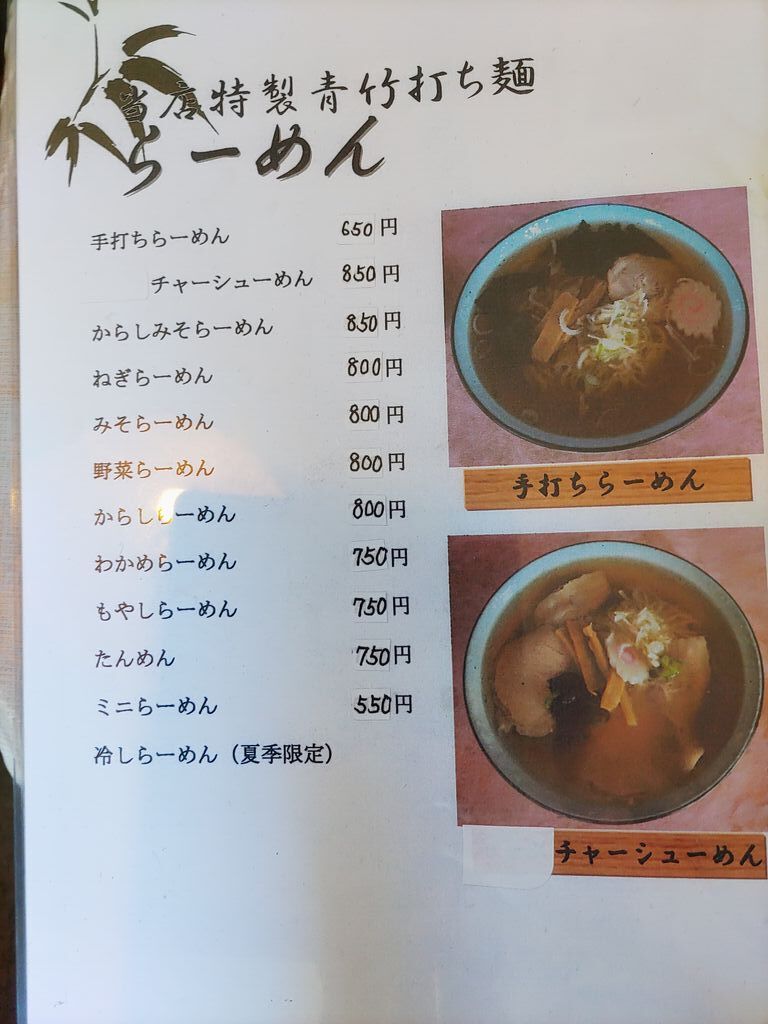 当店特製青竹打ち麺
らーめん
手打ちらーめん 650円
チャーシューめん 850円
からしみそらーめん 850円
ねぎらーめん 800円
みそらーめん 800円
野菜らーめん 800円
からしらーめん 800円
わかめらーめん 750円
もやしらーめん 750円
たんめん 750円
ミニらーめん 550円
冷しらーめん（夏季限定）
手打ちらーめん
チャーシューめん